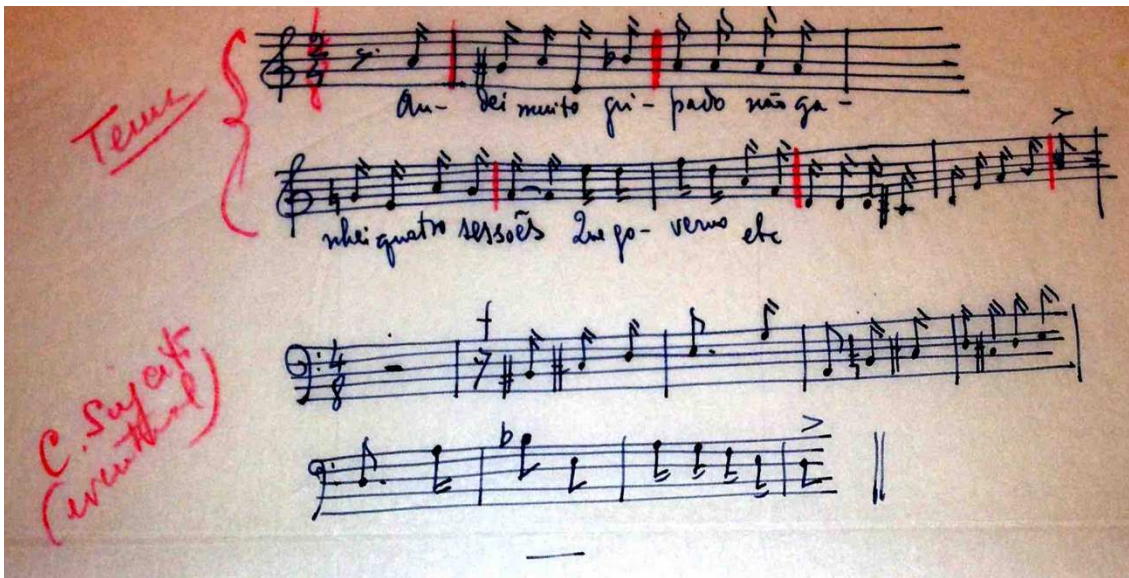 Tema
2/4
8
An- dei muito gri- pado não ga-
nhei quatro sessões Que go- verno etc
C. Sujeito
(eventual)
4/8
f